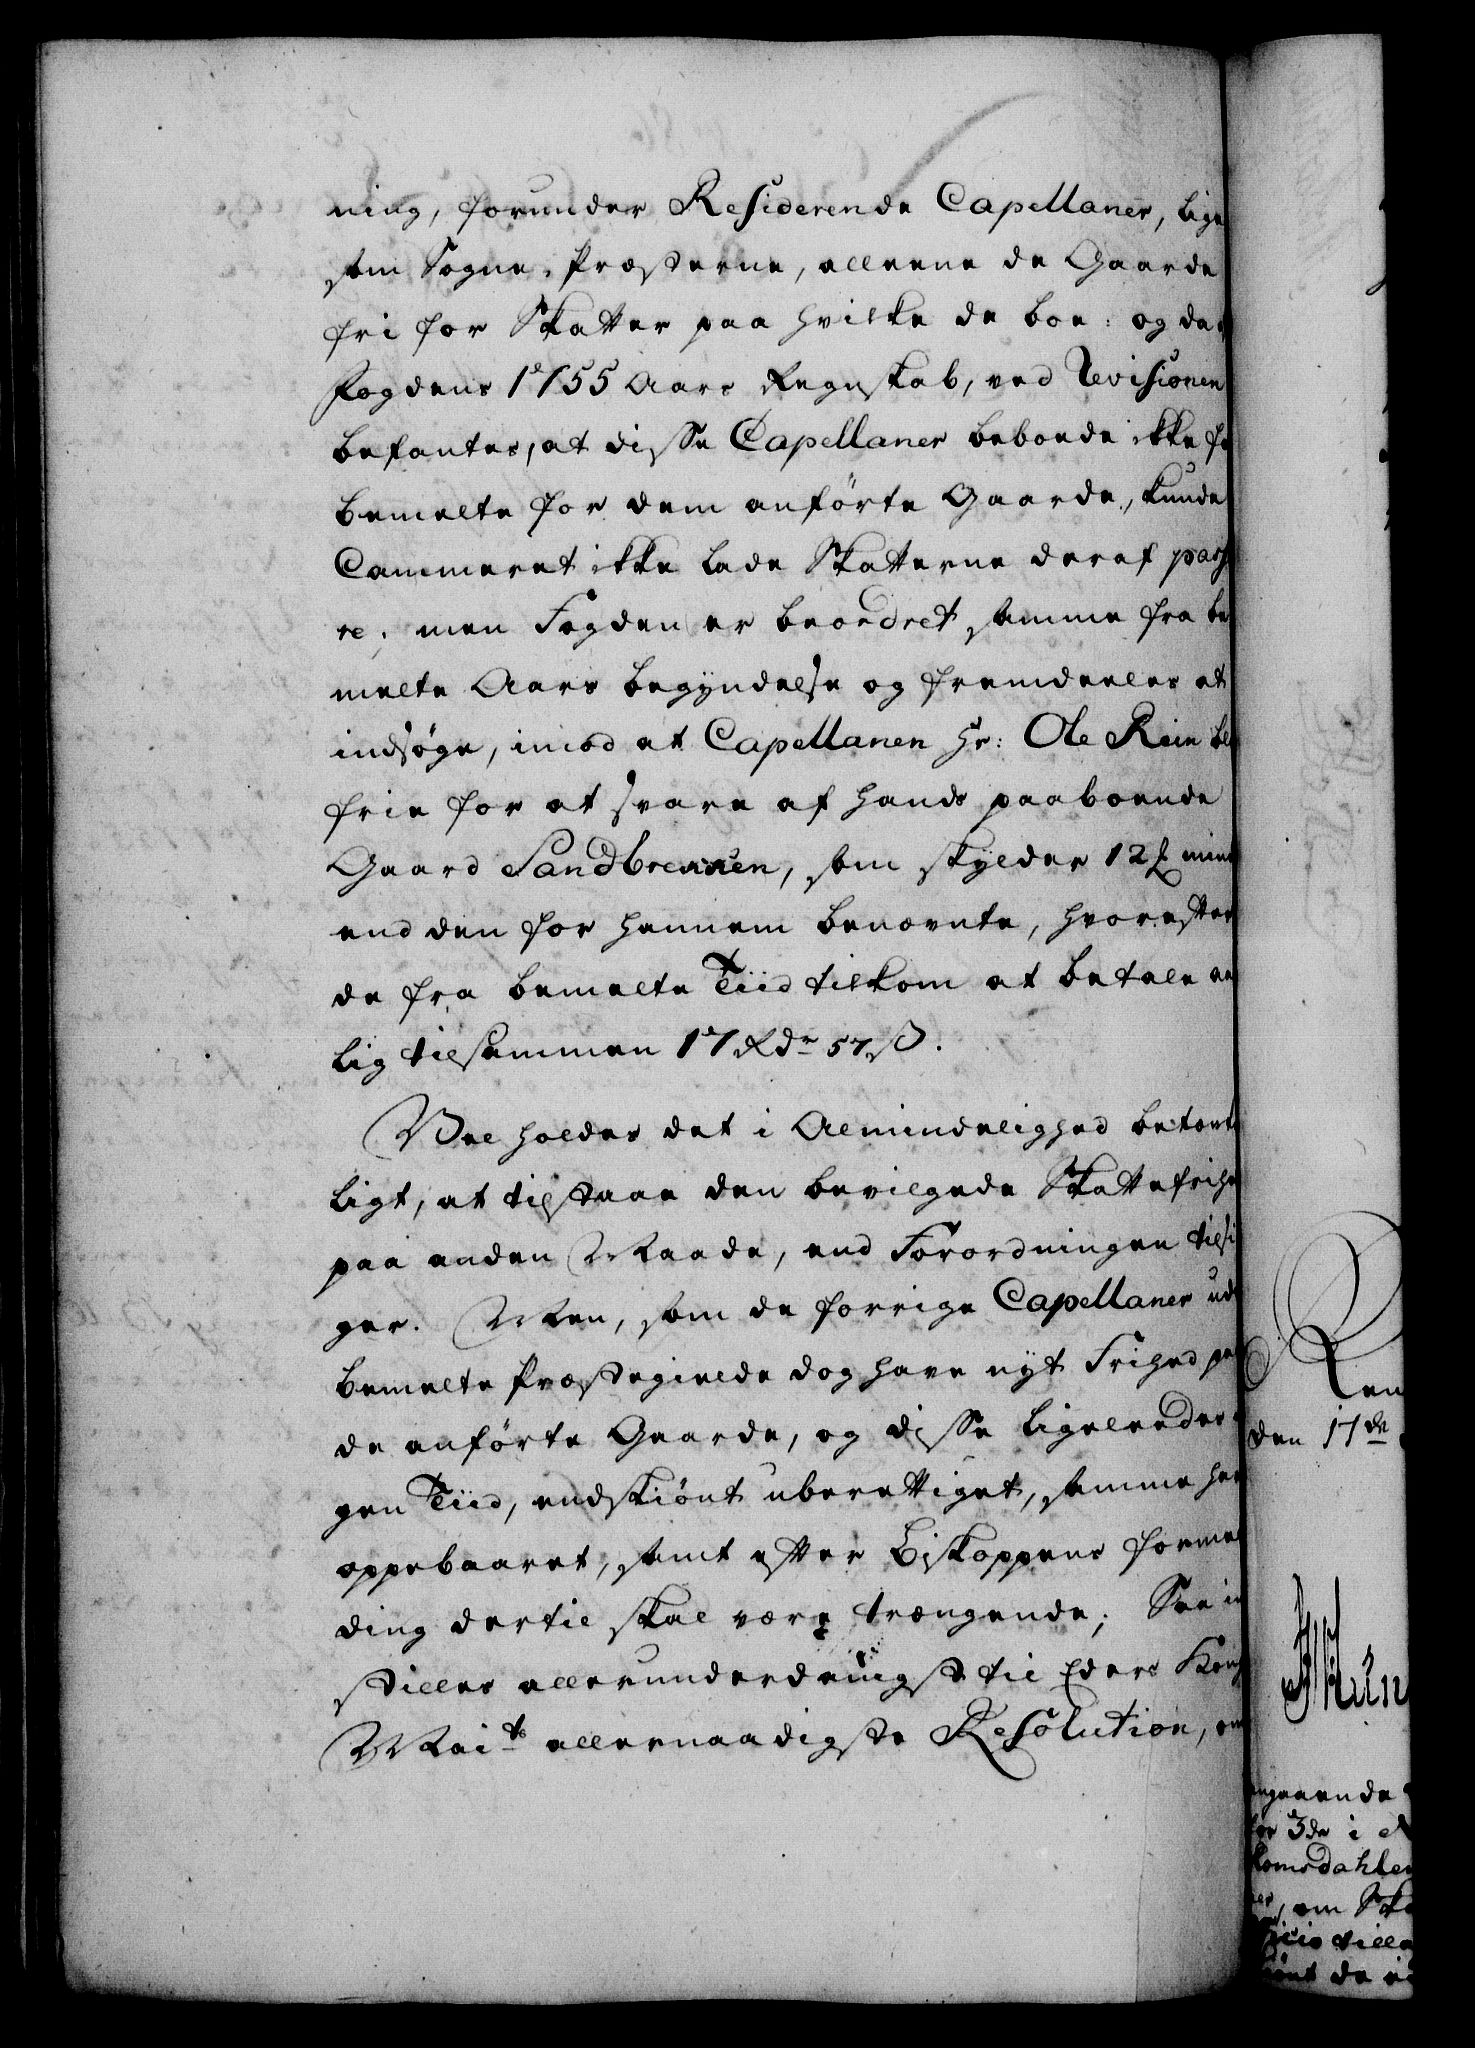 ning, forunder Residerende Capellaner, lige
som Sogne-Præsterne, alleene de Gaarde
fri for Skatter paa hvilke de boe: og da
Fogdens 1755 Aars Regnskab, ved Revisionen
befantes, at disse Capellaner beboede ikke
bemelte for dem anførte Gaarde, kunde
Cammeret ikke lade Skatterne deraf pass
re; men Fogden er beordret samme fra be
melte Aars begyndelse og fremdeeles at
indsøge, imod at Capellanen Hr: Ole Rein
frie for at svare af hands paaboende
Gaard Sandbrennen, som skylder 12 minn
end den for hannem benævnte, hvorefter
de fra bemelte Tiid tilkom at betale aa
lig tilsammen 17 Rdr 57 ß.
Vel holdes det i Almindelighed betænk
ligt, at tilstaae den bevilgede Skattefrihe
paa anden Maade, end Forordningen tilsi
ger. Men, som de forrige Capellaner ud
bemelte Præstegielde dog have nyt Frihed paa
de anførte Gaarde, og disse ligeleedes
gen Tiid, endskiønt uberettiget, samme ha
oppebaaret, samt efter Biskoppens formel
ding dertil skal være trængende; Saa in
stilles allerunderdanigst til Eders Kong
Mai.ts allernaadigste Resolution, om
Ren
den 17de
angaaende
for 3de i
Romsdahlen
om Ska
tilla
de